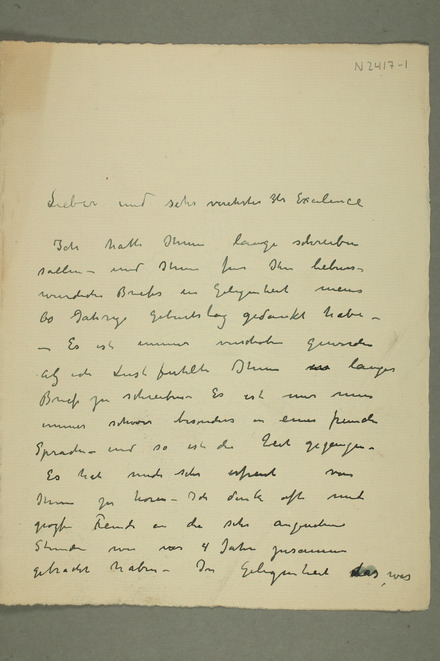 N2417-1
Lieber und sehr verehrter Exelence
Ich hatte Ihnen lange schreiben
sollen – und Ihnen fur Ihr liebens-
wurdiges Briefs en Gelegenheit meins
60 Jahrige Geburtstag gedankt habe –
– Es ist immer verschoben geworden
als ich Lust fuhlte Ihnen langes
Brief zu schreiben – Es ist mir nun
immer schwer besonders in einer fremden
Sprache – und so ist die Zeit gegangen –
Es hat mich sehr erfreut von
Ihnen zu horen – Ich denke oft mit
große Freude an die sehr angenehme
Stunden wir vor 4 Jahre zusammen
gebracht haben – Die Gelegenheit das, was